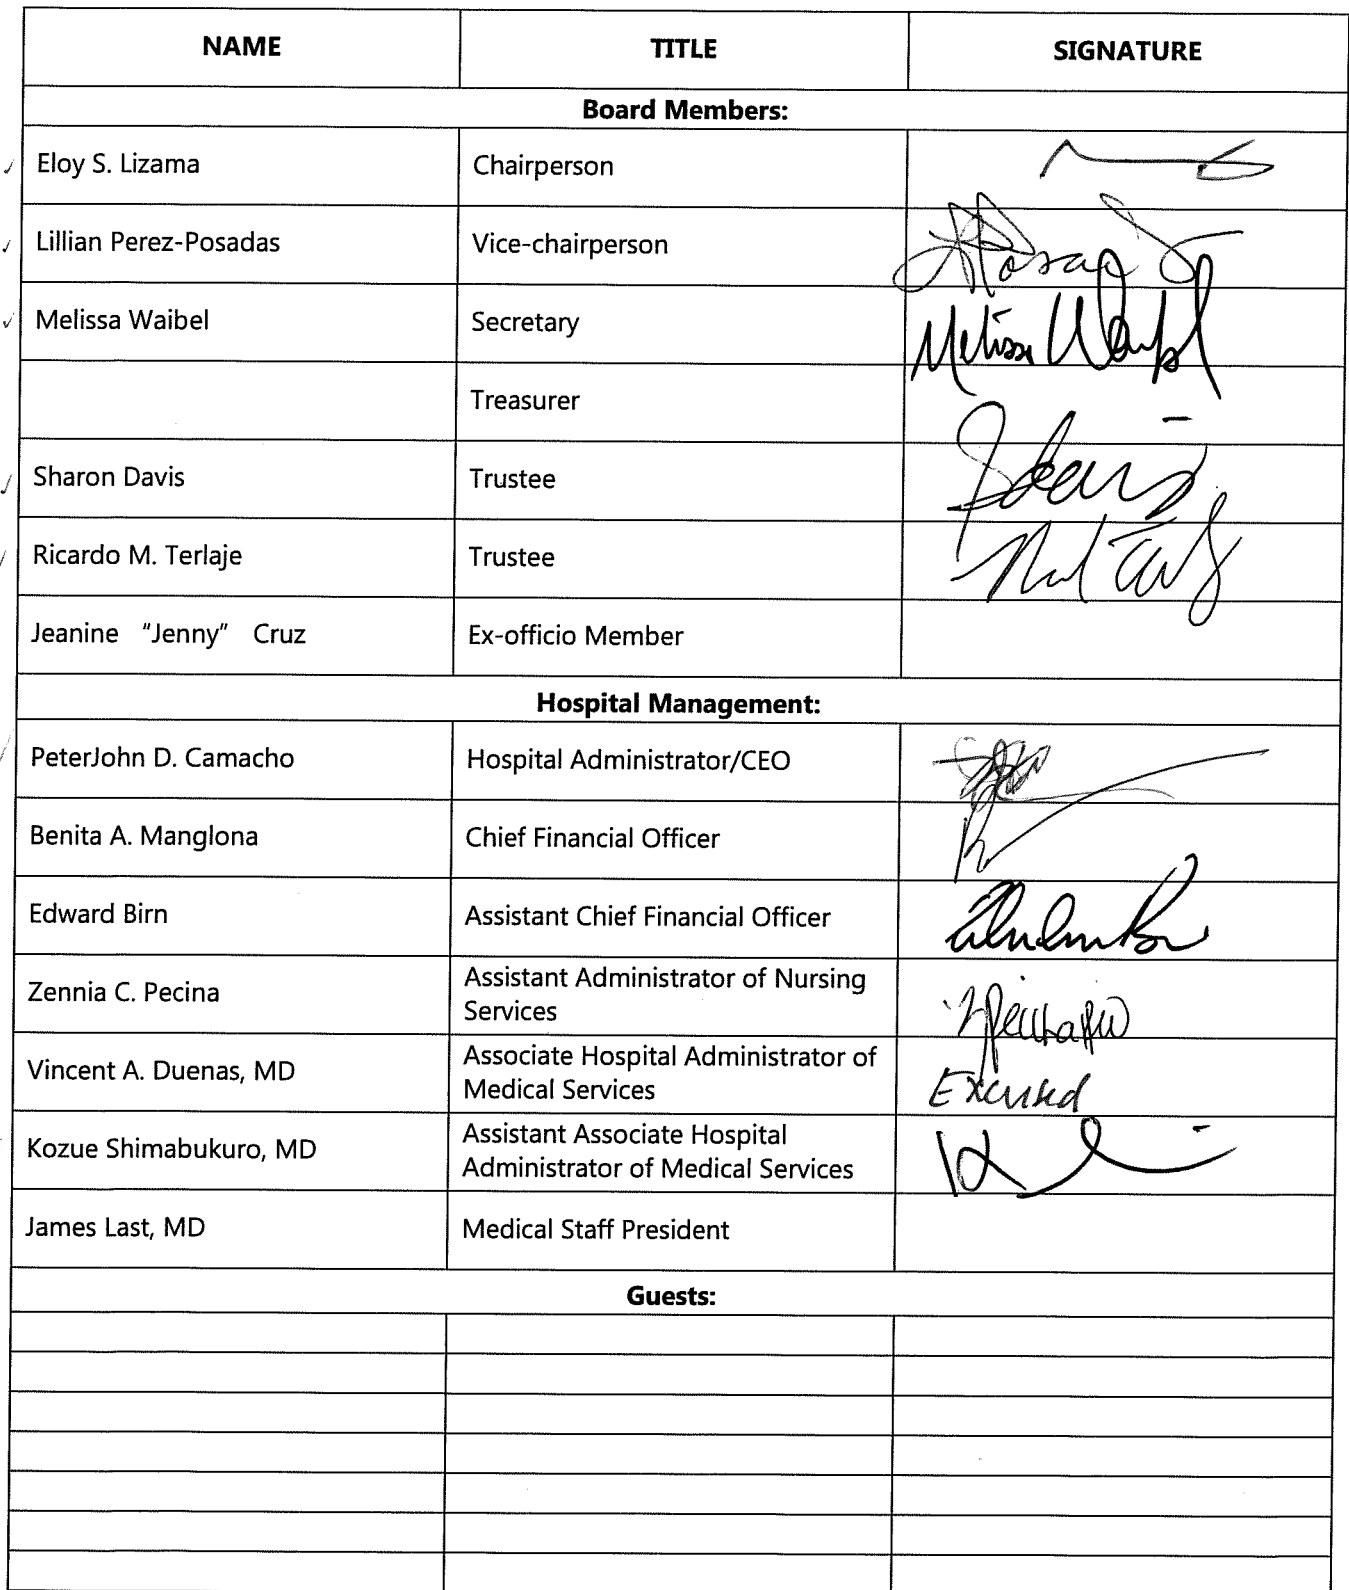 NAME TITLE SIGNATURE
Board Members:
Eloy S. Lizama Chairperson
Lillian Perez-Posadas Vice-chairperson
Melissa Waibel Secretary Melissa Waibel
Treasurer
Sharon Davis Trustee
Ricardo M. Terlaje Trustee
Jeanine "Jenny" Cruz Ex-officio Member
Hospital Management:
PeterJohn D. Camacho Hospital Administrator/CEO
Benita A. Manglona Chief Financial Officer
Edward Birn Assistant Chief Financial Officer
Zennia C. Pecina Assistant Administrator of Nursing
Services
Vincent A. Duenas, MD Associate Hospital Administrator of
Medical Services Excused
Kozue Shimabukuro, MD Assistant Associate Hospital
Administrator of Medical Services
James Last, MD Medical Staff President
Guests: